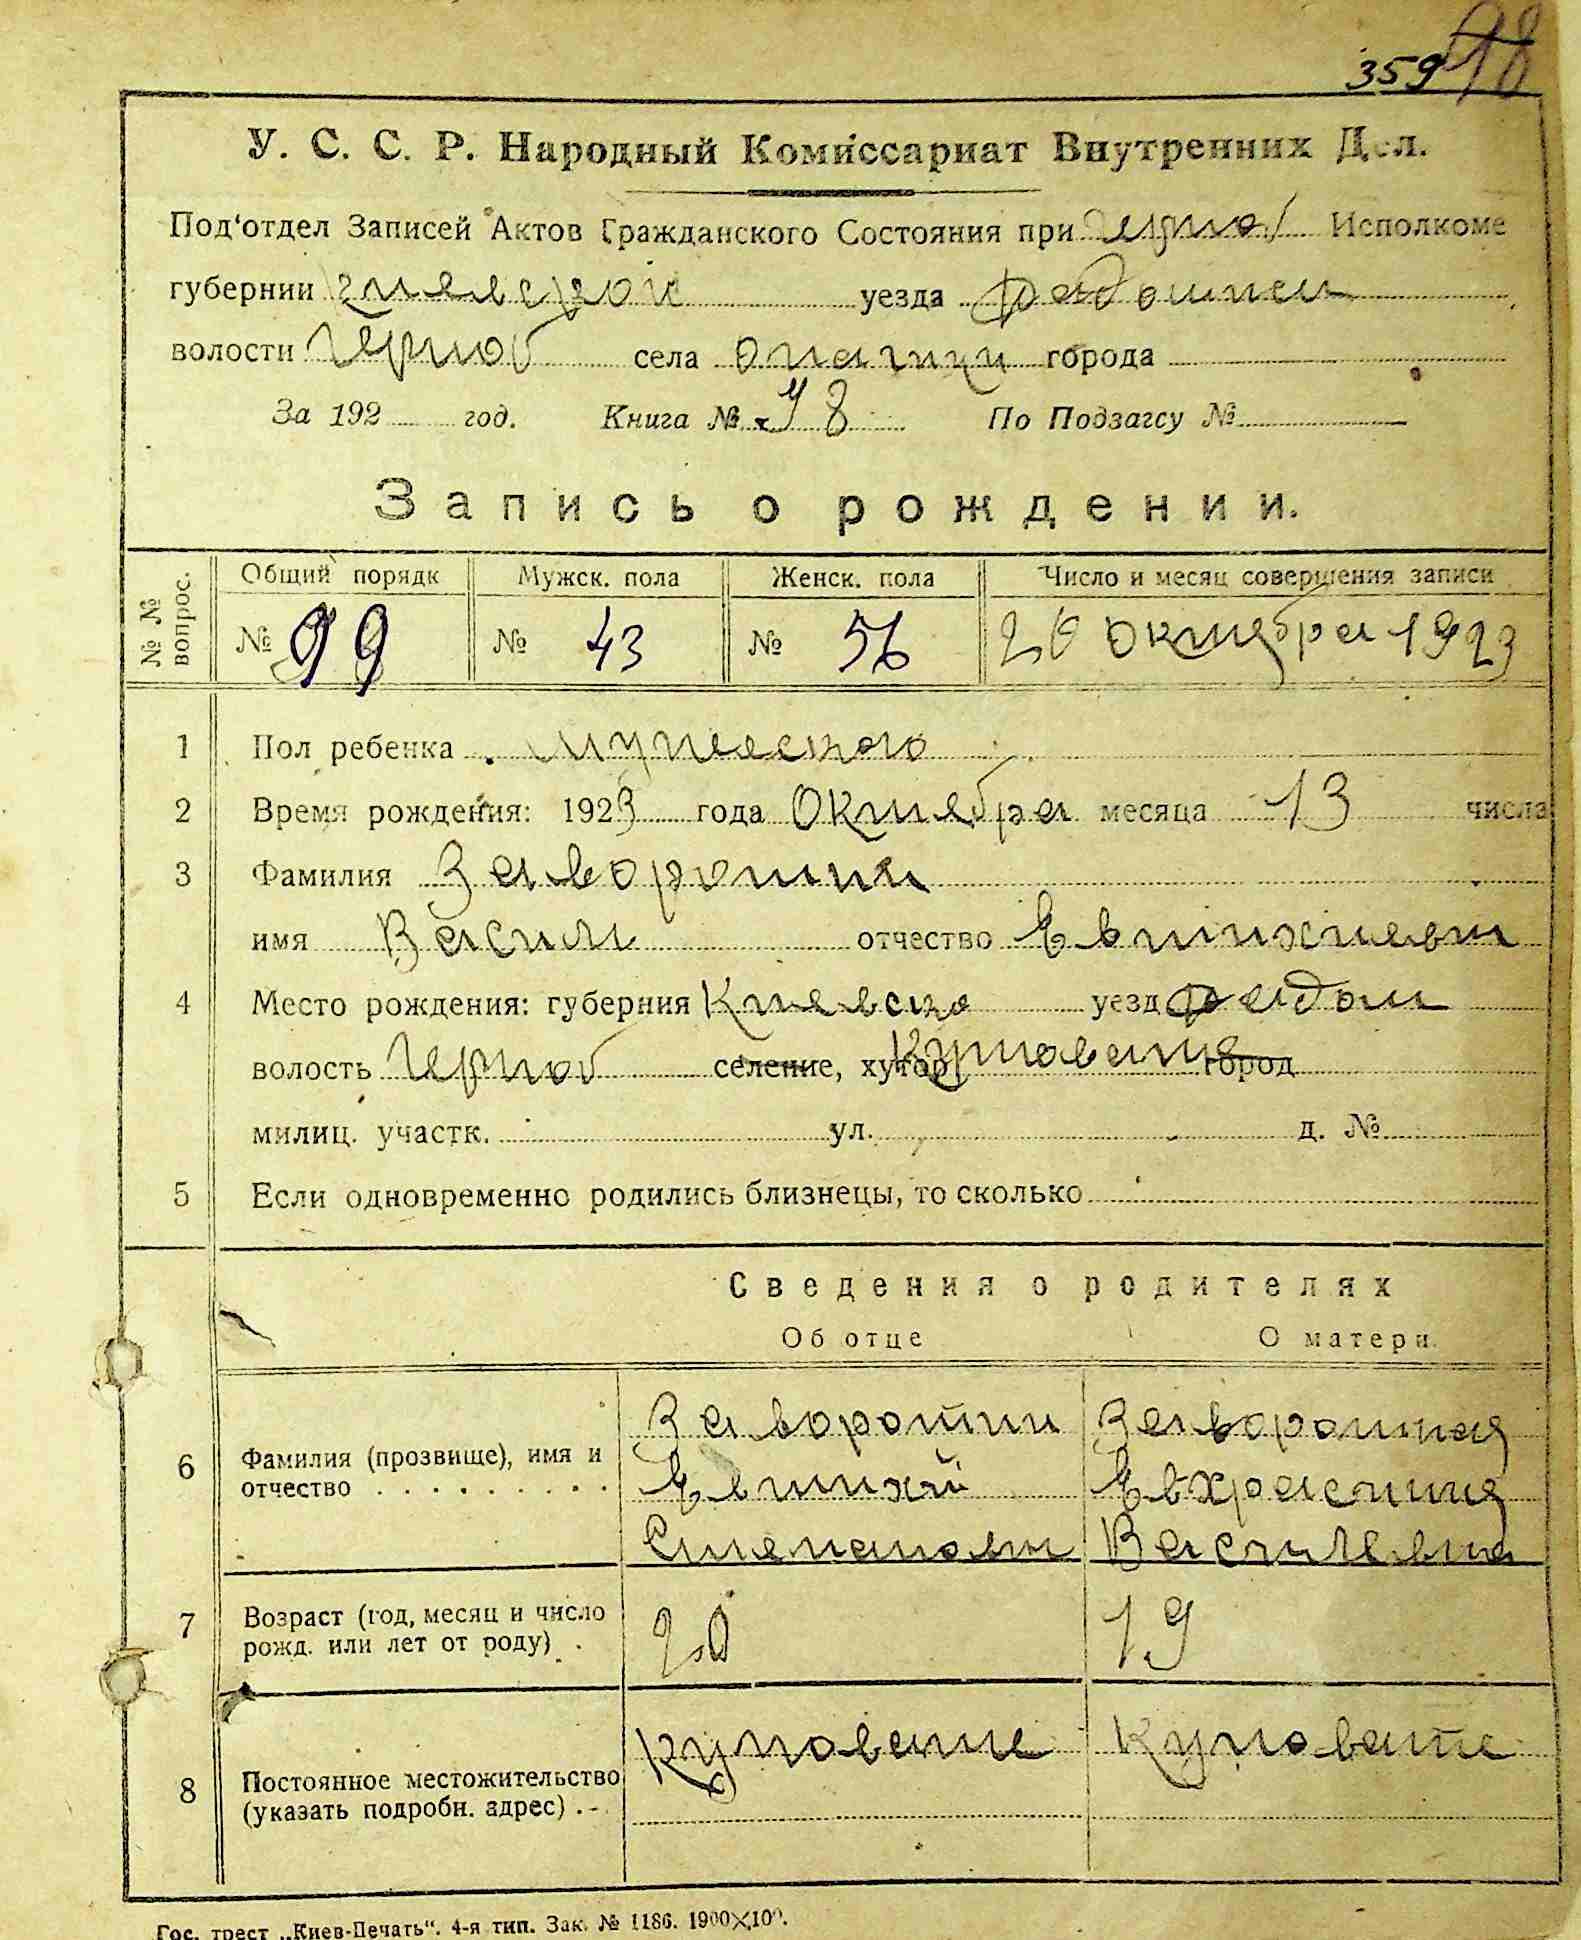 359 98
У. С. С. Р. Народный Комиссариат Внутренних Дел.
Под'отдел Записей Актов Гражданского Состояния при Черноб Исполкоме
губернии Киевской уезда Радомысл
волости Черноб села Опачичи города
За 192 год. Книга № 98 По Подзагсу №
Запись о рождении.
№ № вопрос.
Общий порядк Мужск. пола Женск. пола Число и месяц совершения записи
№ 99 № 43 № 56 20 октября 1923
1 Пол ребенка мужеского
2 Время рождения: 1923 года Октебра месяца 13 числа
3 Фамилия Заворотни
имя Васили отчество
4 Место рождения: губерния Киевско уезд Радом
волость Черноб селение, хутор Куповате город
милиц. участк. ул. д. №
5 Если одновременно родились близнецы, то сколько
Сведения о родителях
Об отце О матери
6 Фамилия (прозвище), имя и отчество
Заворотни Заворотная
Евхрасиния
Степанови Василевна
7 Возраст (год, месяц и число рожд. или лет от роду) 20 19
8 Постоянное местожительство (указать подробн. адрес) Куповате Куповате
Гос. трест „Киев-Печать“. 4-я тип. Зак. № 1186. 1900×100.